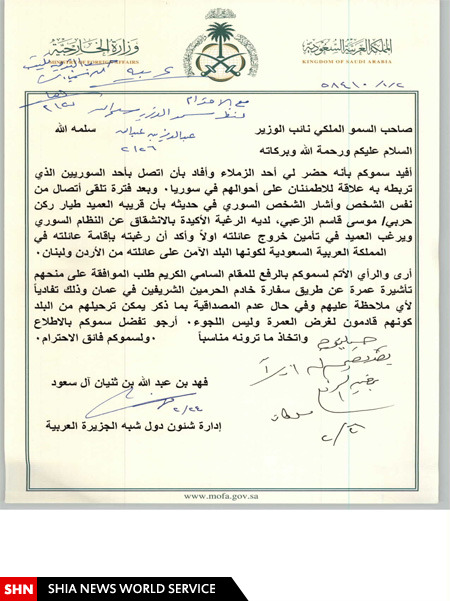 المملكة العربية السعودية
KINGDOM OF SAUDI ARABIA
وزارة الخارجية
MINISTRY OF FOREIGN AFFAIRS
مع الاحترام
صاحب السمو الملكي نائب الوزير سلمه الله
السلام عليكم ورحمة الله وبركاته
أفيد سموكم بأنه حضر لي أحد الزملاء وأفاد بأن اتصل بأحد السوريين الذي
تربطه به علاقة للاطمئنان على أحوالهم في سوريا. وبعد فترة تلقى أتصال من
نفس الشخص وأشار الشخص السوري في حديثه بأن قريبه العميد طيار ركن
حربي/ موسى قاسم الزعبي، لديه الرغبة الأكيدة بالانشقاق عن النظام السوري
ويرغب العميد في تأمين خروج عائلته اولاً وأكد أن رغبته بإقامة عائلته في
المملكة العربية السعودية لكونها البلد الآمن على عائلته من الأردن ولبنان.
أرى والرأي الأتم لسموكم بالرفع للمقام السامي الكريم طلب الموافقة على منحهم
تأشيرة عمرة عن طريق سفارة خادم الحرمين الشريفين في عمان وذلك تفادياً
لأي ملاحظة عليهم وفي حال عدم المصداقية بما ذكر يمكن ترحيلهم من البلد
كونهم قادمون لغرض العمرة وليس اللجوء. أرجو تفضل سموكم بالاطلاع
واتخاذ ما ترونه مناسباً. ولسموكم فائق الاحترام.
فهد بن عبد الله بن ثنيان آل سعود
٢/٢٤
إدارة شئون دول شبه الجزيرة العربية
www.mofa.gov.sa
SHN SHIA NEWS WORLD SERVICE